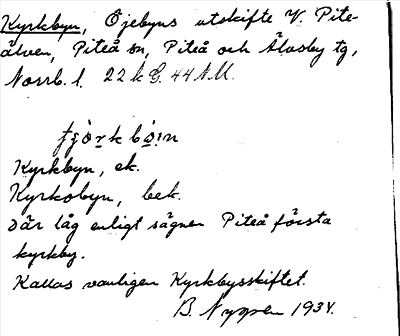 Kyrkbyn, Öjebyns utskifte V. Pite-
älven, Piteå sn, Piteå och Älvsby tg,
Norrb. l. 22 k G. 44 N.M.
Kyrkbyn, ek.
Kyrkobyn, bek.
Där låg enligt sägnen Piteå första
kyrkby.
Kallas vanligen Kyrkbysskiftet.
B. Nygren 1934.